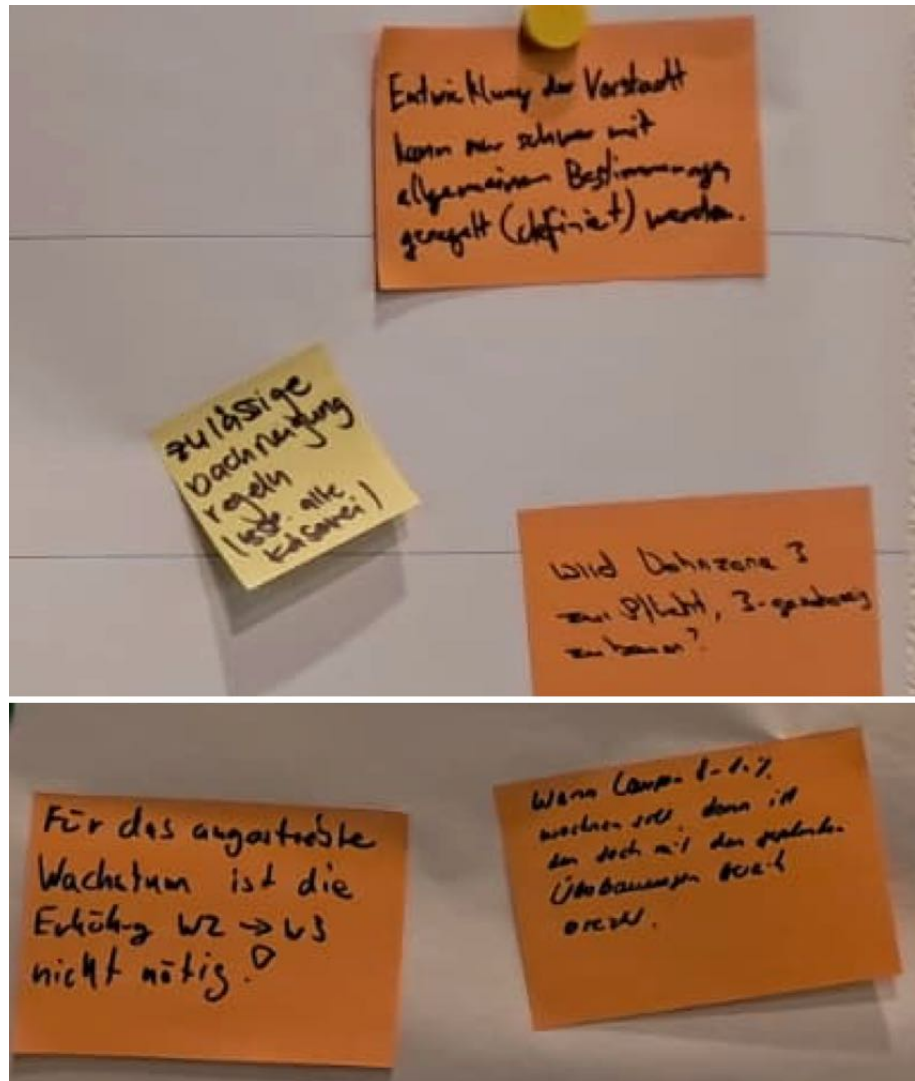 Entwicklung der Vorstadt
kann nur schwer mit
allgemeinen Bestimmungen
geregelt (definiert) werden.
zulässige
Dachneigung
regeln
alle
Wird Wohnzone 3
zur Pflicht, 3-geschossig
zu bauen?
Für das angestrebte
Wachstum ist die
Erhöhung W2 → W3
nicht nötig!
Wenn Laupen
wachsen soll dann ist
das doch mit den geplanten
Überbauungen bereits
erreicht.